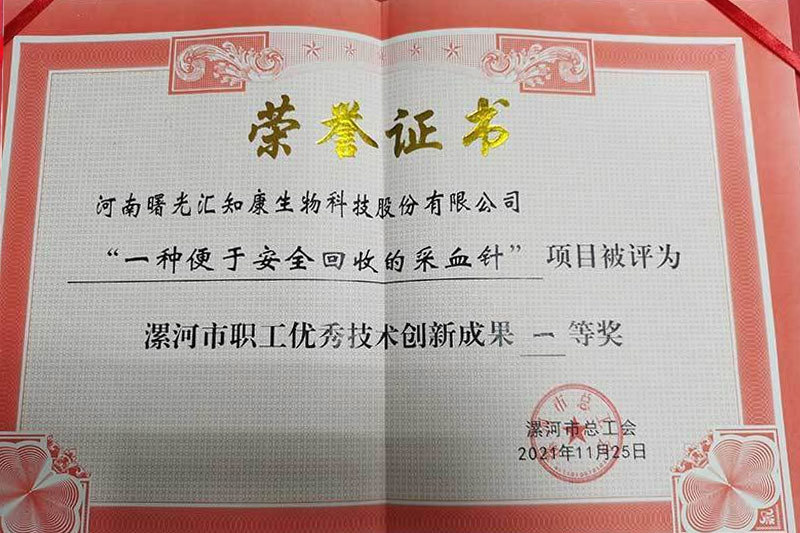 荣誉证书
河南曙光汇知康生物科技股份有限公司
“一种便于安全回收的采血针”项目被评为
漯河市职工优秀技术创新成果 一 等奖
漯河市总工会
2021年11月25日